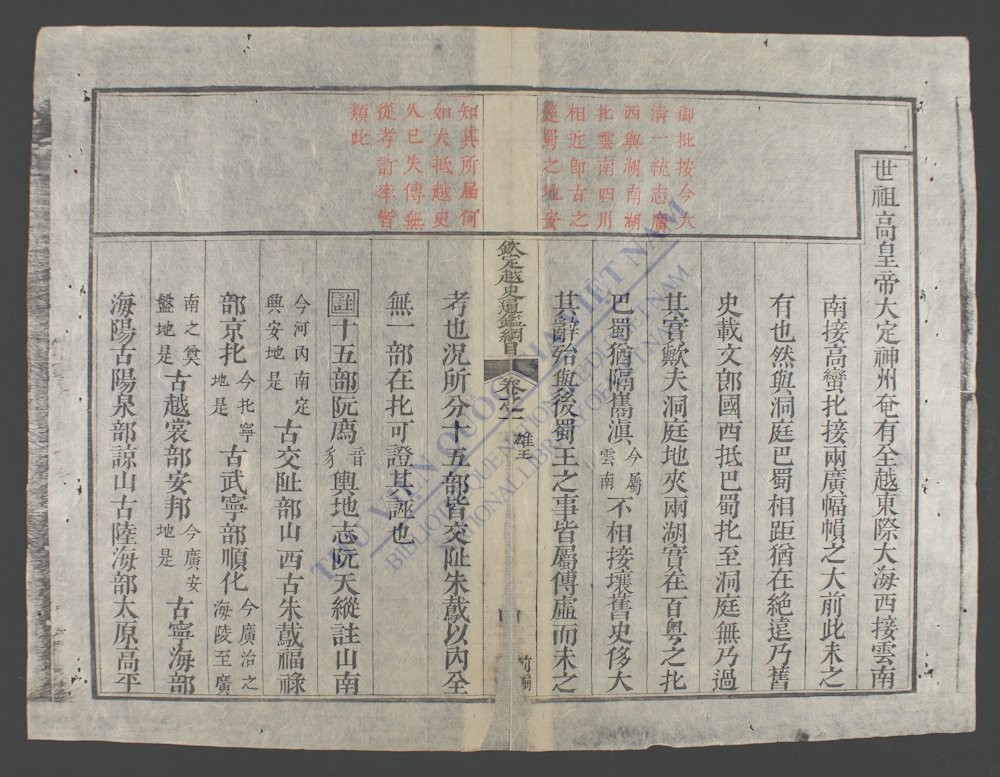 御批按今大
清一統志廣
西與湖南湖
北雲南四川
相近即古之
巴蜀之地安
知其所屬何
如大抵越史
久已失傳無
從考訂率皆
類此
世祖高皇帝大定神州奄有全越東際大海西接雲南
南接高蠻北接兩廣幅幀之大前此未之
有也然與洞庭巴蜀相距猶在絶遠乃舊
史載文郎國西抵巴蜀北至洞庭無乃過
其實歟夫洞庭地夾兩湖實在百粤之北
巴蜀猶隔嶲滇今屬雲南不相接壤舊史侈大
其辭殆與後蜀王之事皆屬傳虛而未之
欽定越史通鑑綱目 卷之一 雄王 四 前編
考也況所分十五部皆交阯朱䳒以内全
無一部在北可證其誣也
註十五部阮廌音豸輿地志阮天縱註山南
今河内南定興安地是古交阯部山西古朱䳒福祿
部京北今北寧地是古武寧部順化今廣治之海陵至廣
南之奠盤地是古越裳部安邦今廣安地是古寧海部
海陽古陽泉部諒山古陸海部太原高平
THƯ VIỆN QUỐC GIA VIỆT NAM
BIBLIOTHEQUE NATIONALE DU VIETNAM
NATIONAL LIBRARY OF VIETNAM